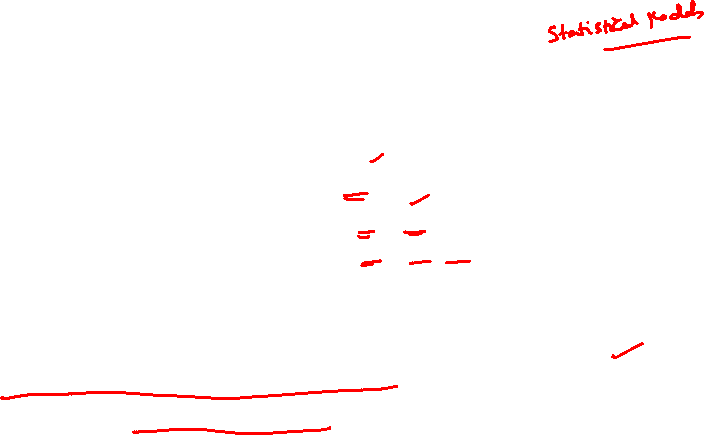 Statistical Models